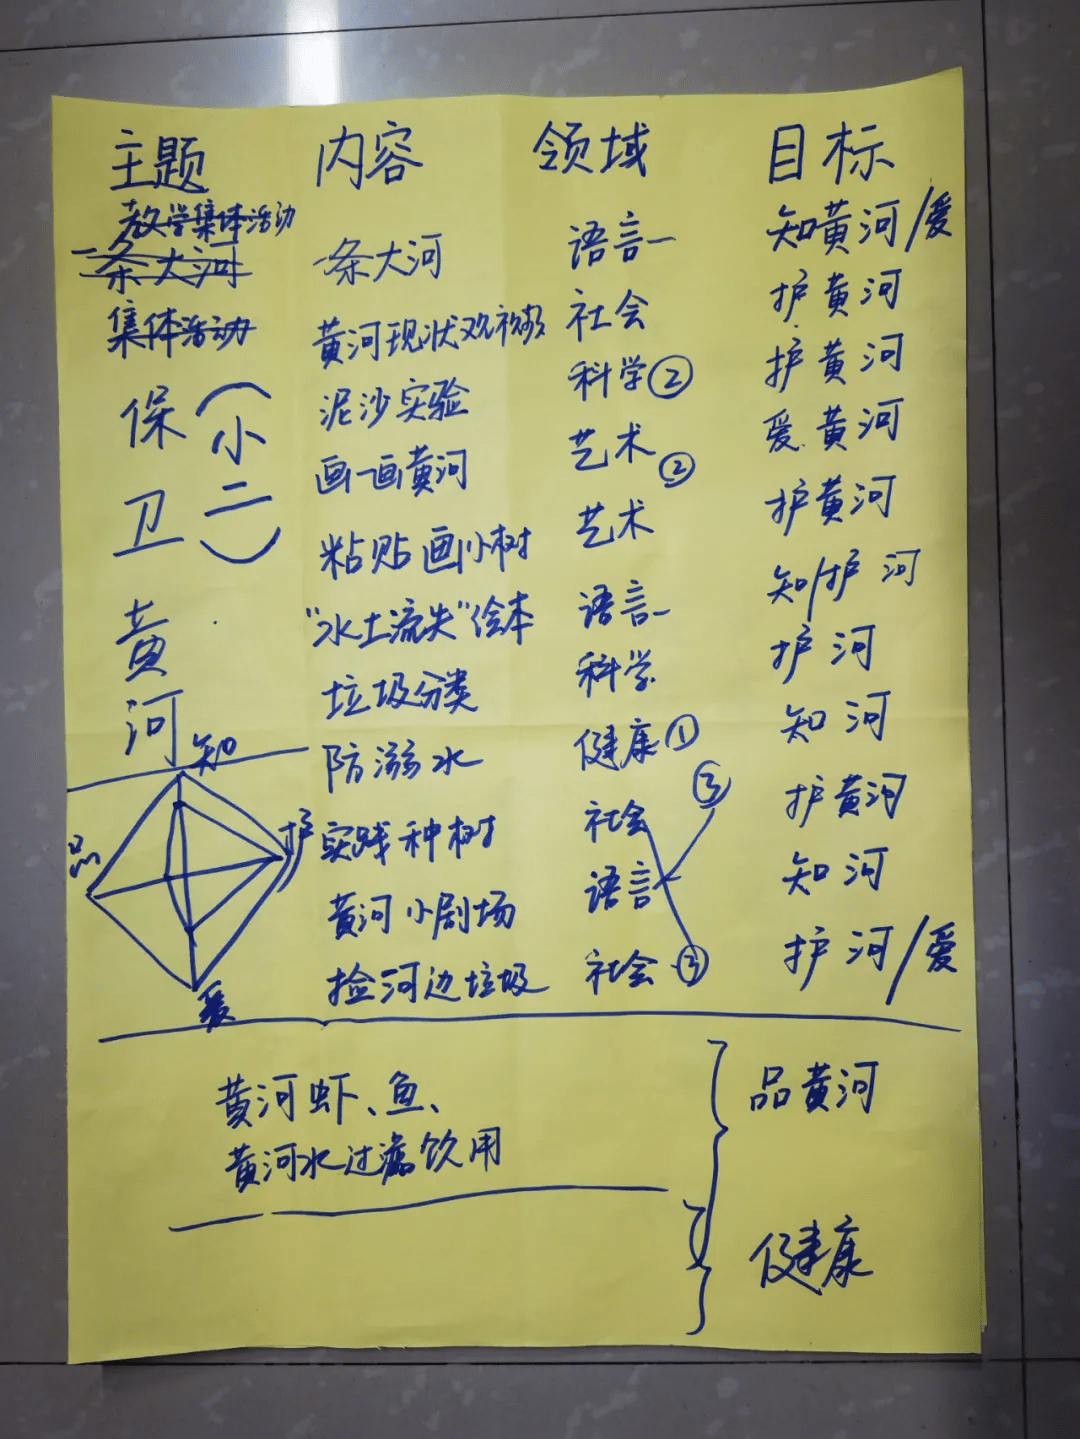 主题 内容 领域 目标
教学集体活动
一条大河 一条大河 语言一 知黄河/爱
集体活动 黄河现状观视频 社会 护黄河
泥沙实验 科学② 护黄河
保卫黄河
(小二)
画一画黄河 艺术② 爱黄河
粘贴画小树 艺术 护黄河
"水土流失"绘本 语言一 知/护河
垃圾分类 科学 护河
防溺水 健康① 知河
实践种树 社会 护黄河
③
黄河小剧场 语言 知河
捡河边垃圾 社会③ 护河/爱
知
品 护
爱
黄河虾、鱼、 品黄河
黄河水过滤饮用
健康